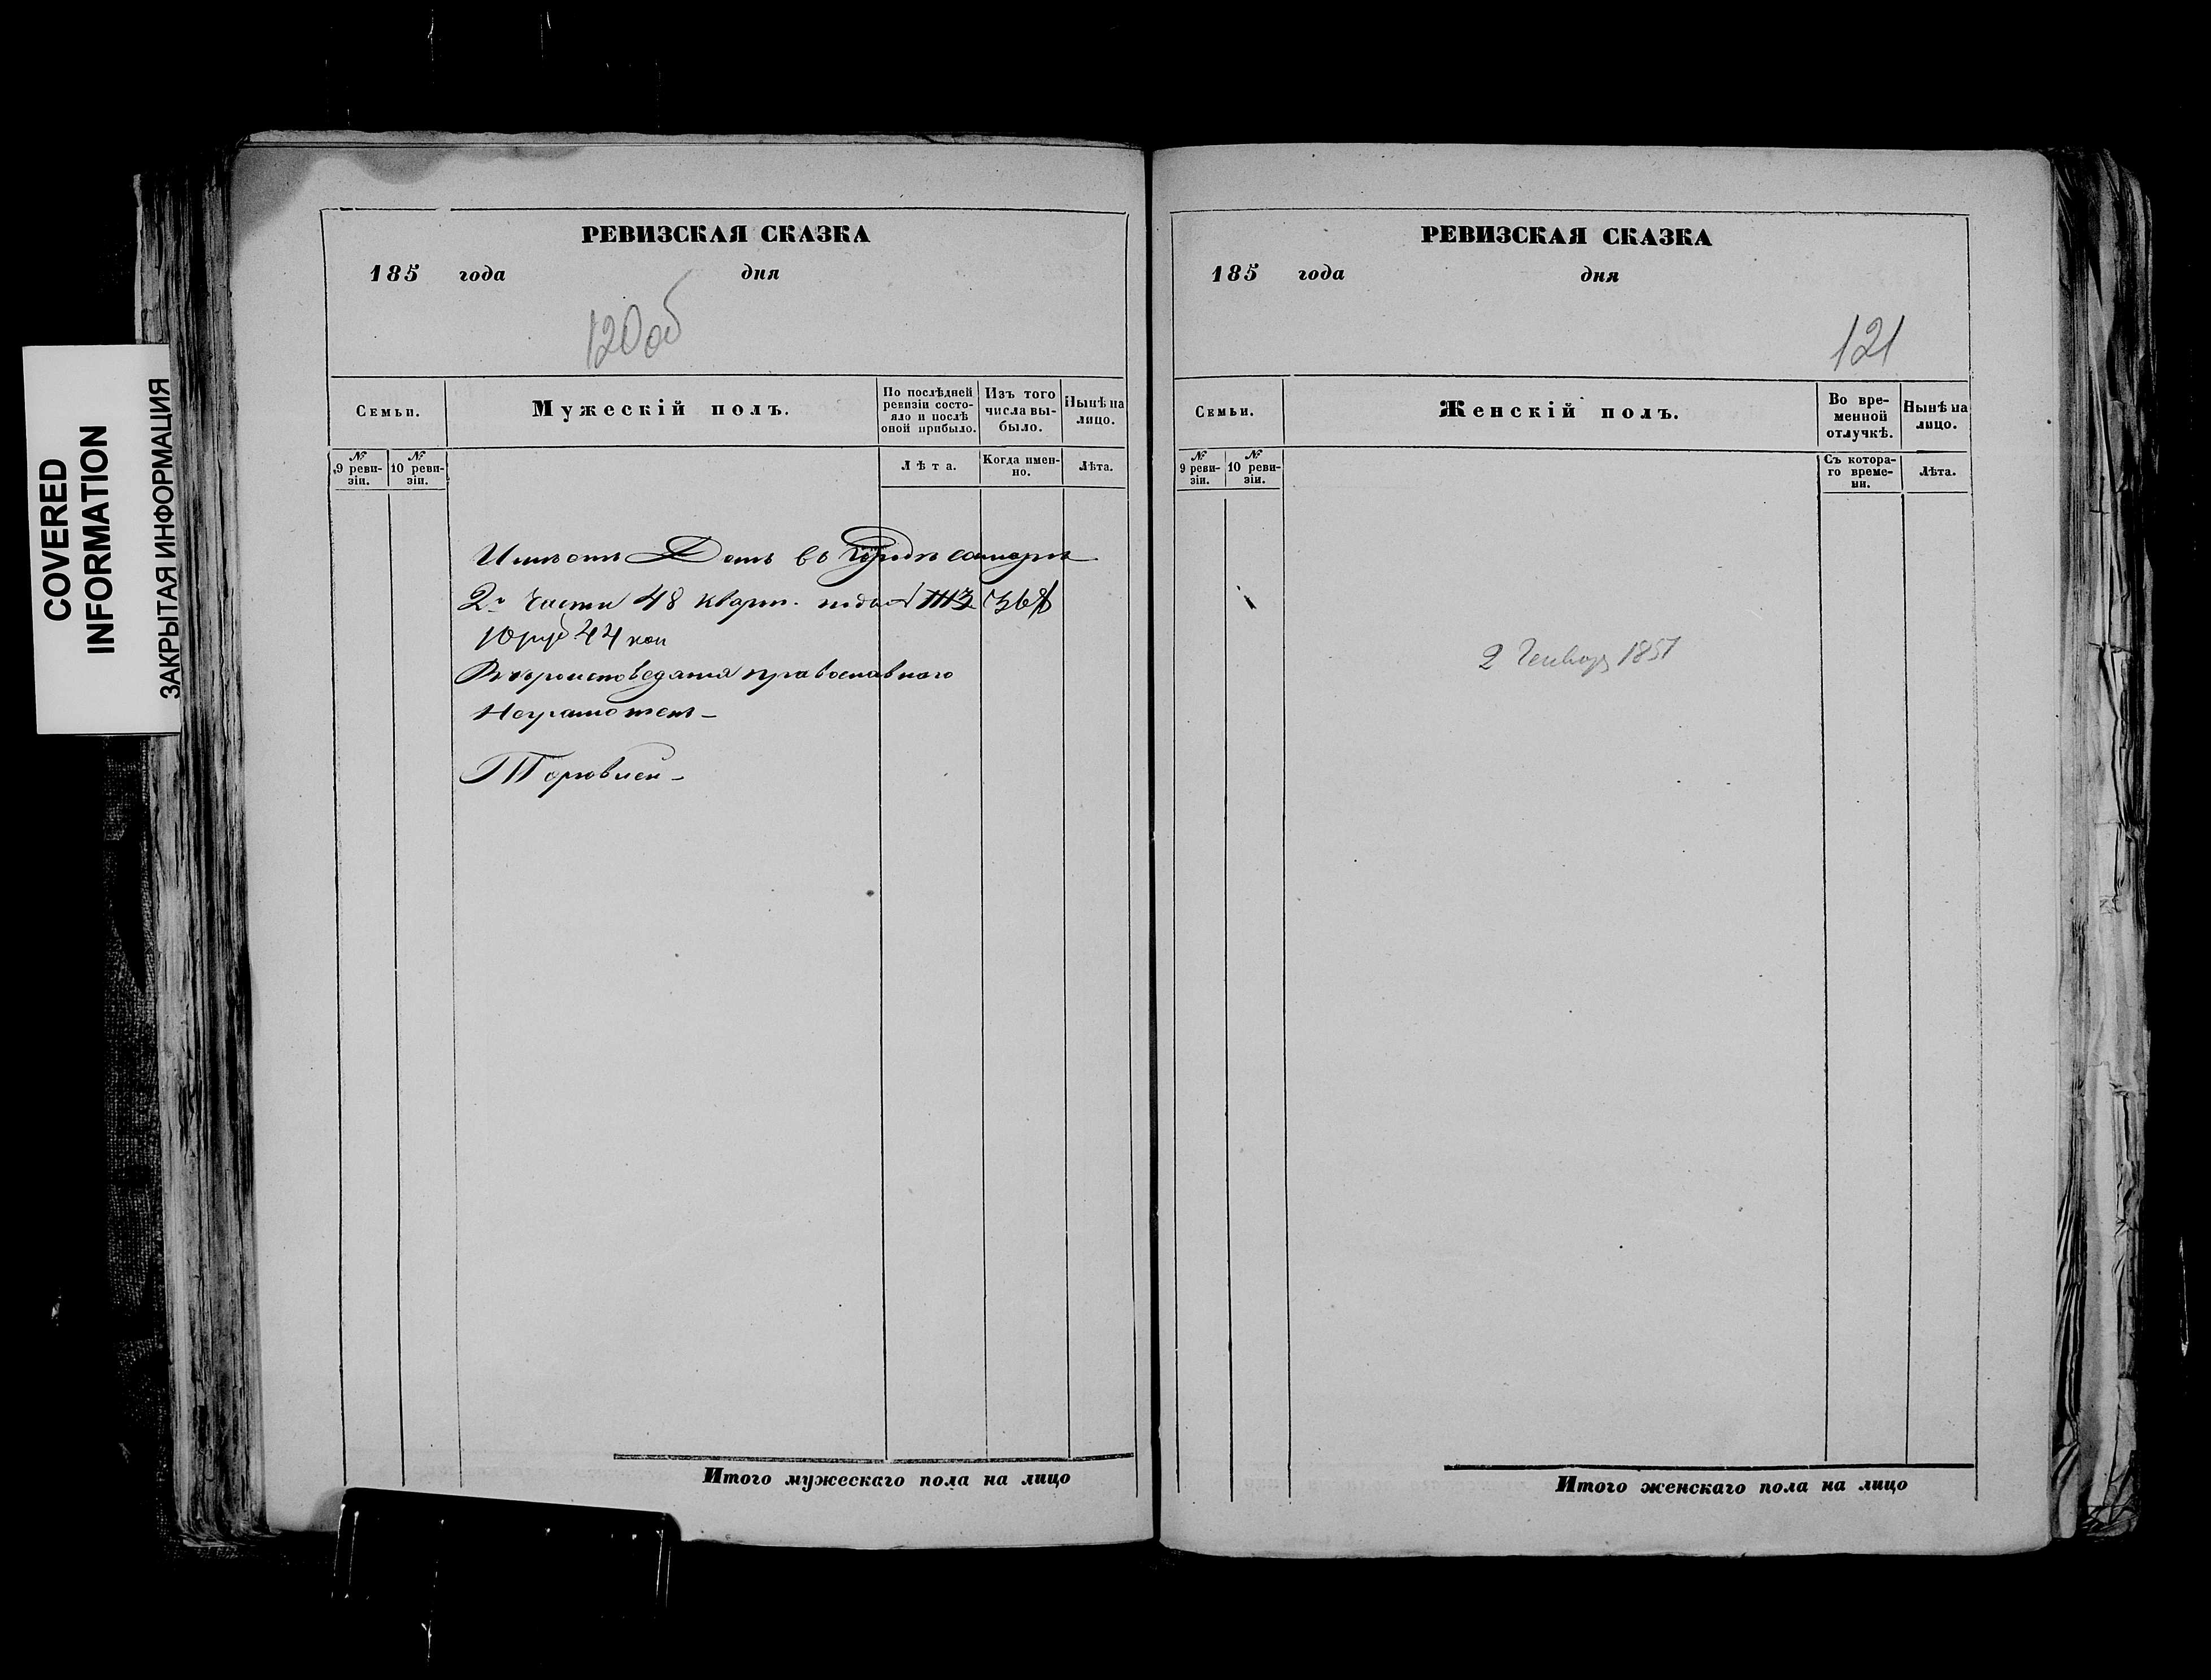 COVERED
INFORMATION
ЗАКРЫТАЯ ИНФОРМАЦИЯ
РЕВИЗСКАЯ СКАЗКА
185 года дня
120 об
Семьи.
Мужескій полъ.
По послѣдней ревизіи состояло и послѣ оной прибыло.
Изъ того числа выбыло.
Нынѣ на лицо.
№ 9 ревизіи.
№ 10 ревизіи.
Лѣта.
Когда именно.
Лѣта.
Имѣетъ Домъ въ городѣ самарѣ
2й части 48 кварт. подъ №
10 руб 44 коп
Вѣроисповеданія православнаго
Неграмотенъ
Торговлей
Итого мужескаго пола на лицо
РЕВИЗСКАЯ СКАЗКА
185 года дня
121
Семьи.
Женскій полъ.
Во временной отлучкѣ.
Нынѣ на лицо.
№ 9 ревизіи.
№ 10 ревизіи.
Съ котораго времени.
Лѣта.
2 Генваря 1851
Итого женскаго пола на лицо